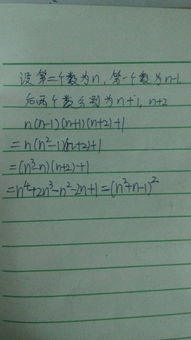 设第二个数为n,第一个数为n-1.
后两个数分别为n+1, n+2
n(n-1)(n+1)(n+2)+1
=n(n²-1)(n+2)+1
=(n³-n)(n+2)+1
=n⁴+2n³-n²-2n+1=(n²+n-1)²